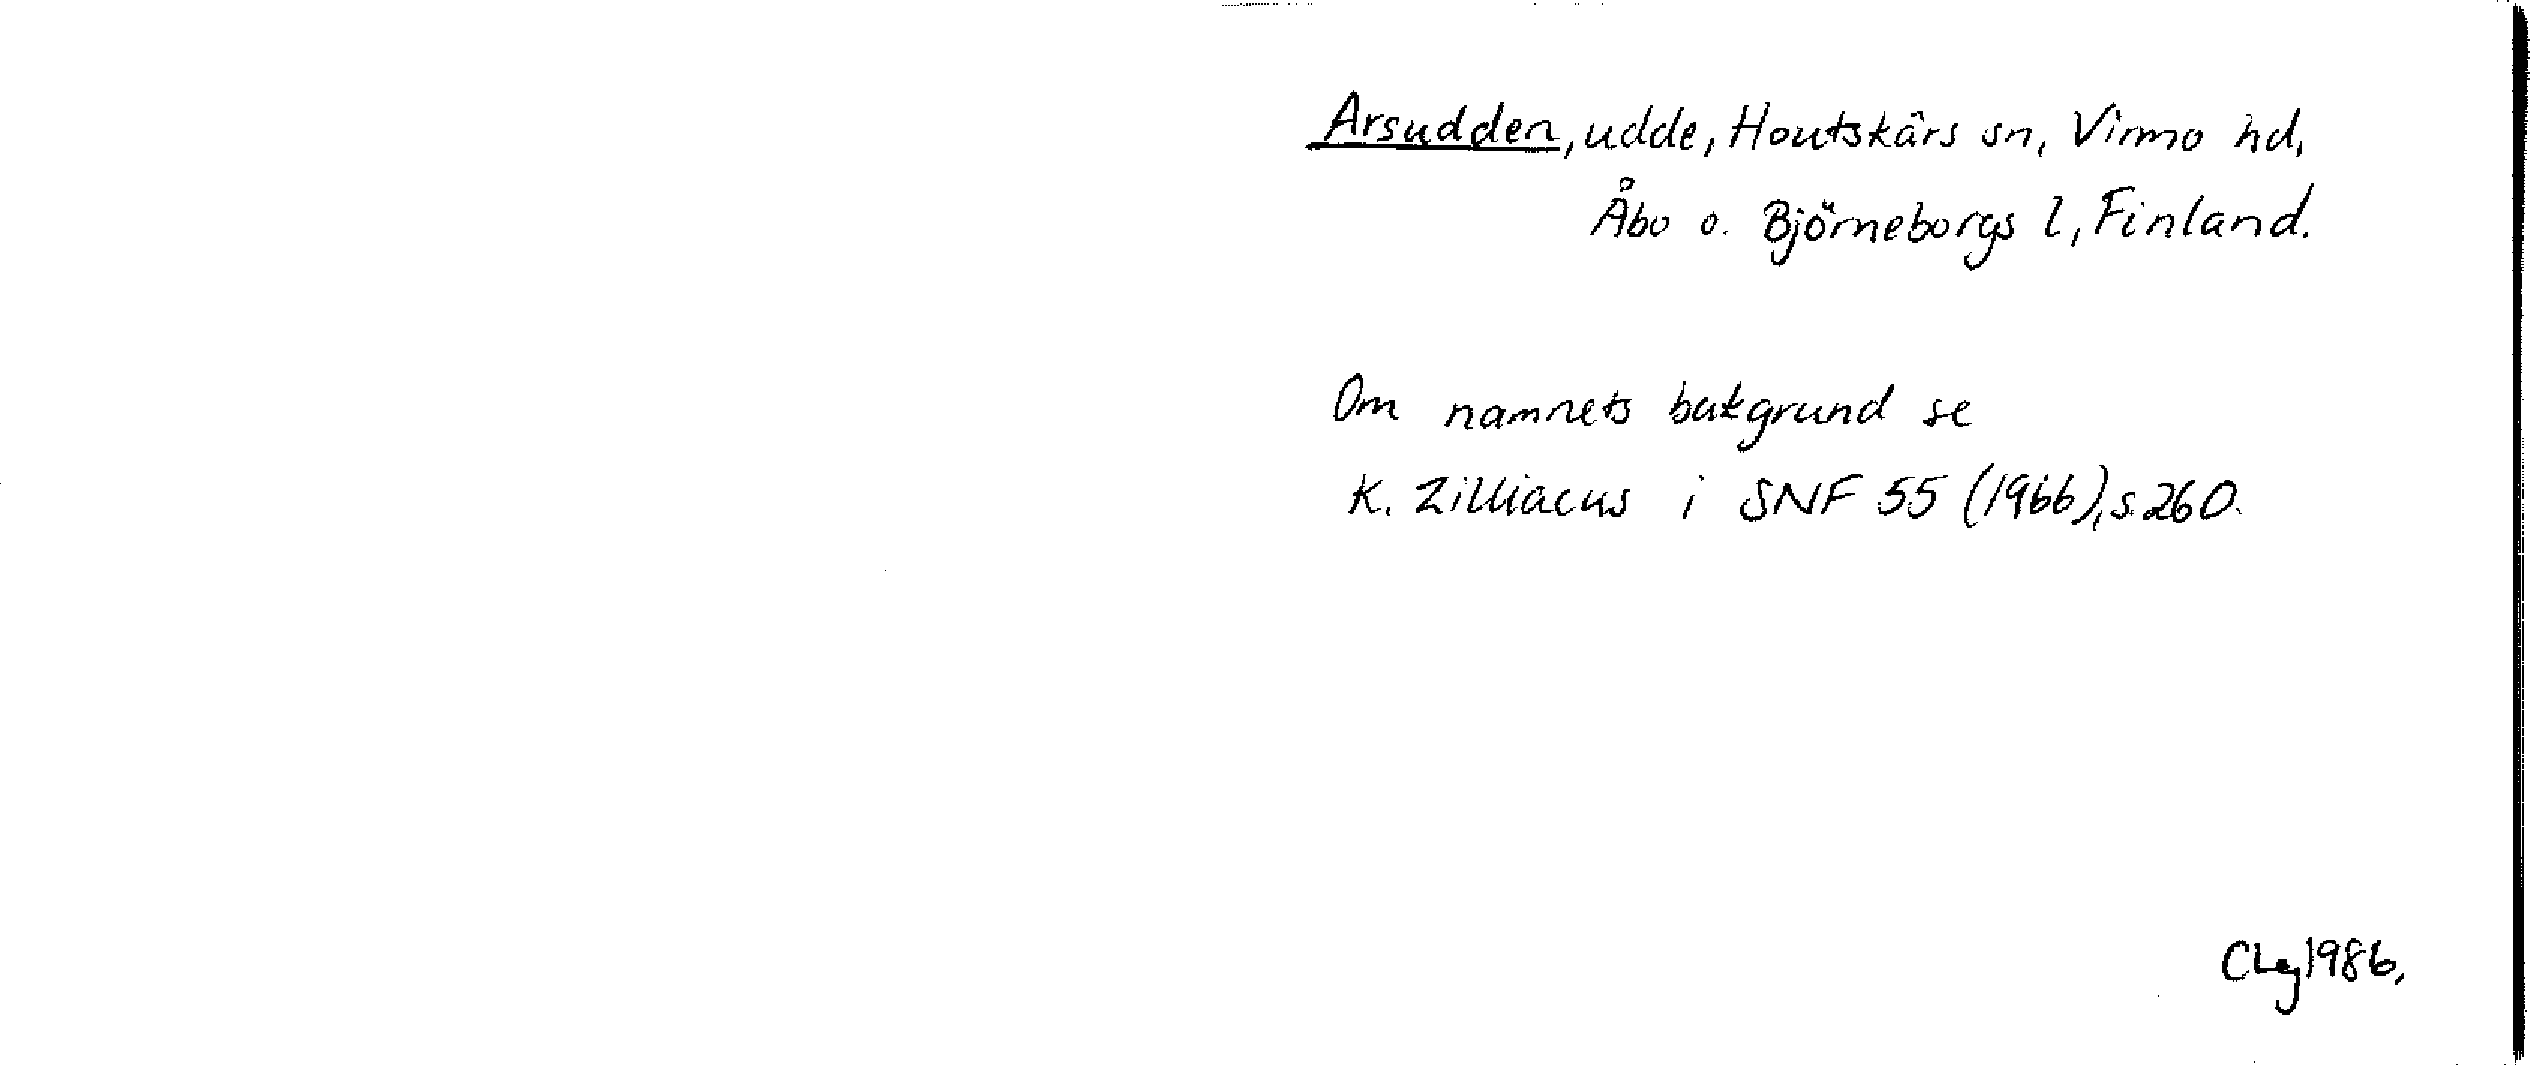 Arsudden, udde, Houtskärs sn, Virmo hd,
Åbo o. Björneborgs l, Finland.
Om namnets bakgrund se
K. Zilliacus i SNF 55 (1966), s. 260.
CLej 1986.